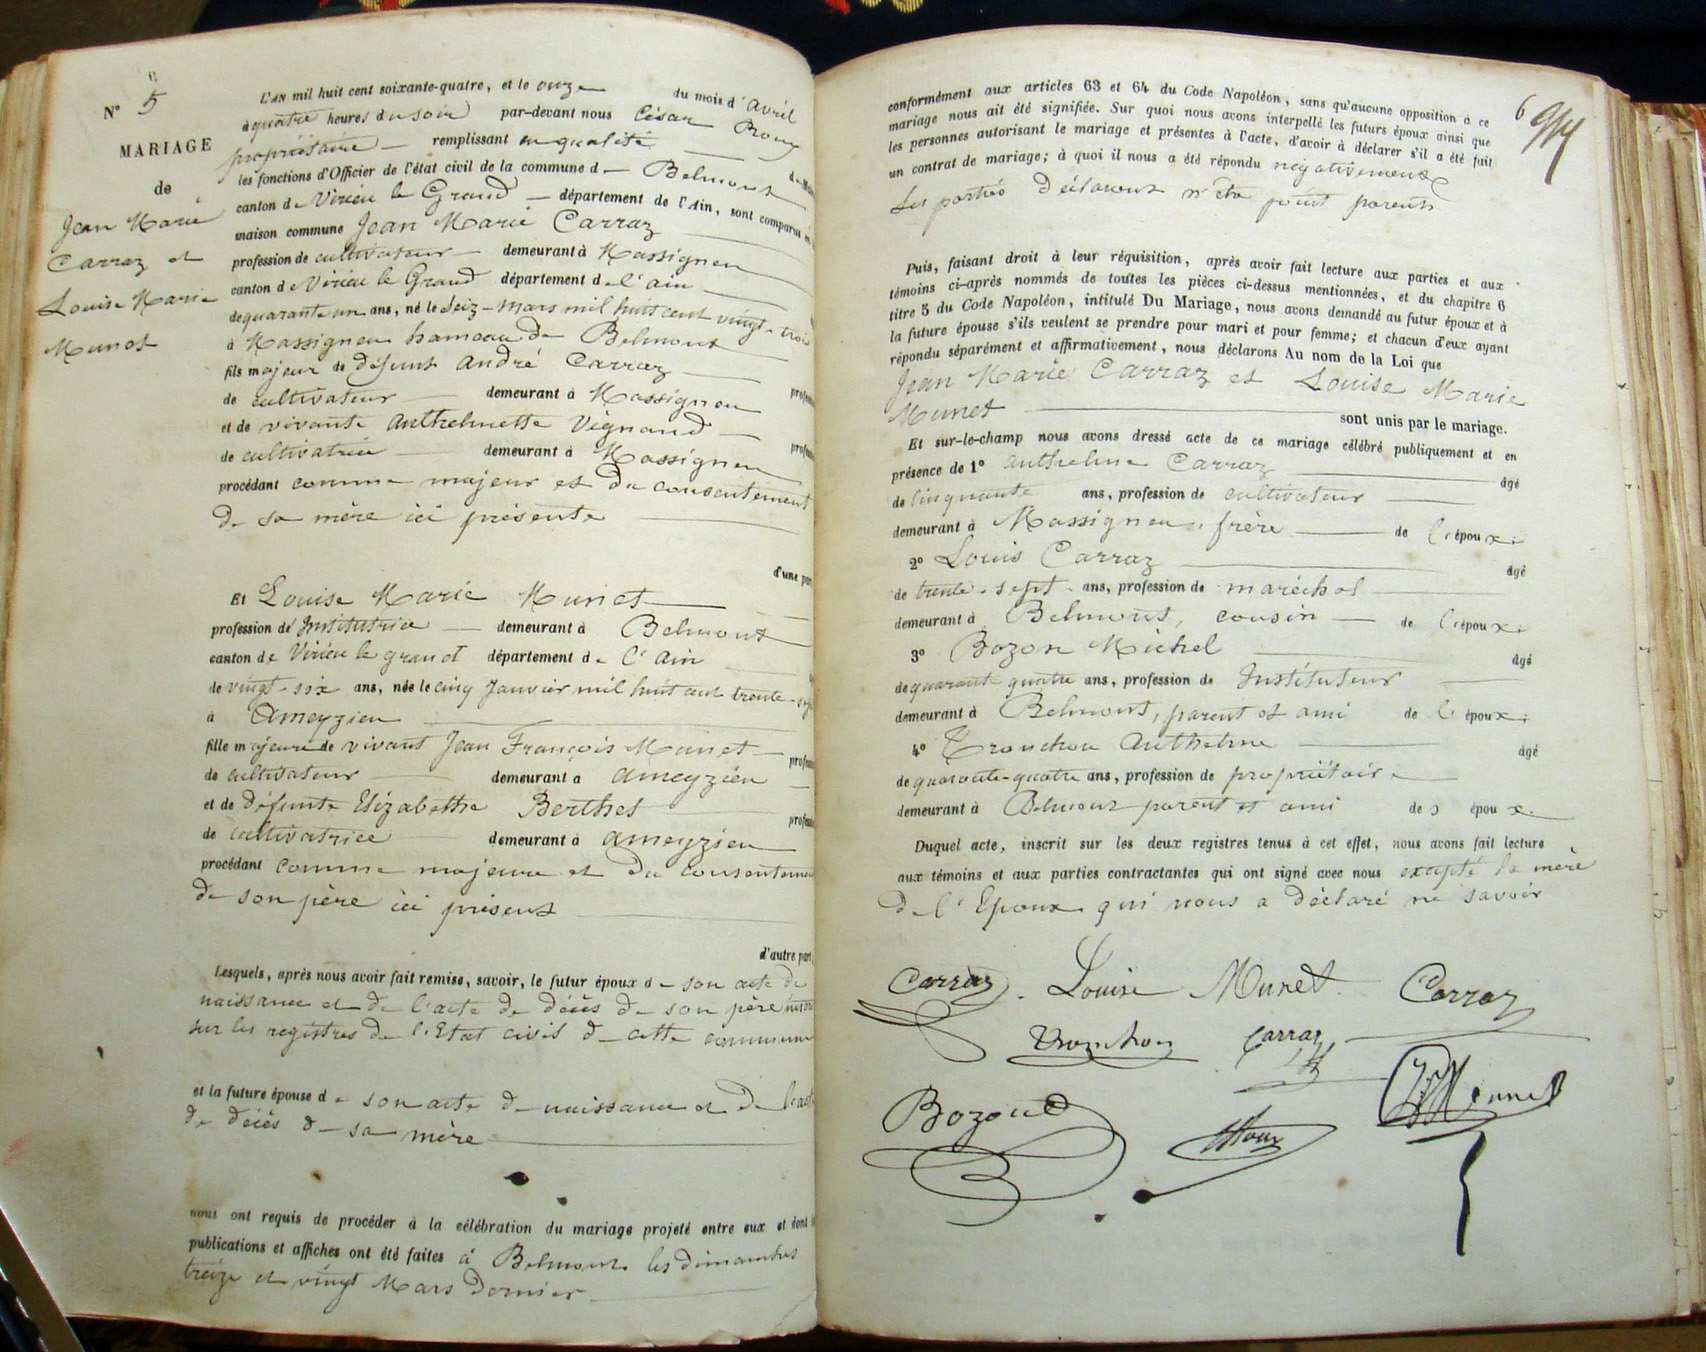 N° 5
MARIAGE
de
Jean Marie
Carraz et
Louise Marie
Munet
L'AN mil huit cent soixante-quatre, et le onze du mois d'avril
à quatre heures du soir par-devant nous César Roux
propriétaire remplissant en qualité de
les fonctions d'Officier de l'état civil de la commune de Belmont
canton de Virieu le Grand département de l'Ain, sont comparus en
maison commune Jean Marie Carraz
profession de cultivateur demeurant à Massignieu
canton de Virieu le Grand département de l'ain
de quarante un ans, né le seize mars mil huit cent vingt-trois
à Massignieu hameau de Belmont
fils majeur de défunt André Carraz
de cultivateur demeurant à Massignieu
et de vivante Anthelmette Vignaud
de cultivatrice demeurant à Massignieu
procédant comme majeur et du consentement
de sa mère ici présente
d'une part
Et Louise Marie Munet
profession de Institutrice demeurant à Belmont
canton de Virieu le grand département de l'ain
de vingt-six ans, née le cinq Janvier mil huit cent trente-sept
à Ameyzieu
fille majeure de vivant Jean François Munet
de cultivateur demeurant à ameyzieu
et de défunte Elizabethe Berthet
de cultivatrice demeurant à ameyzieu
procédant comme majeure et du consentement
de son père ici présent
d'autre part,
Lesquels, après nous avoir fait remise, savoir, le futur époux de son acte de
naissance et de l'acte de décès de son père inscrits
sur les registres de l'Etat civil de cette commune
et la future épouse de son acte de naissance et de l'acte
de décès de sa mère
nous ont requis de procéder à la célébration du mariage projeté entre eux et dont les
publications et affiches ont été faites à Belmont les dimanches
treize et vingt Mars dernier
6
conformément aux articles 63 et 64 du Code Napoléon, sans qu'aucune opposition à ce
mariage nous ait été signifiée. Sur quoi nous avons interpellé les futurs époux ainsi que
les personnes autorisant le mariage et présentes à l'acte, d'avoir à déclarer s'il a été fait
un contrat de mariage; à quoi il nous a été répondu négativement
Les parties déclarent n'être point parents
Puis, faisant droit à leur réquisition, après avoir fait lecture aux parties et aux
témoins ci-après nommés de toutes les pièces ci-dessus mentionnées, et du chapitre 6
titre 5 du Code Napoléon, intitulé Du Mariage, nous avons demandé au futur époux et à
la future épouse s'ils veulent se prendre pour mari et pour femme; et chacun d'eux ayant
répondu séparément et affirmativement, nous déclarons Au nom de la Loi que
Jean Marie Carraz et Louise Marie
Munet sont unis par le mariage.
Et sur-le-champ nous avons dressé acte de ce mariage célébré publiquement et en
présence de 1° Anthelme Carraz âgé
de cinquante ans, profession de cultivateur
demeurant à Massignieu, frère de l'époux.
2° Louis Carraz âgé
de trente-sept ans, profession de maréchal
demeurant à Belmont, cousin de l'époux.
3° Bozon Michel âgé
de quarante quatre ans, profession de Instituteur
demeurant à Belmont, parent et ami de l'époux.
4° Tronchon Anthelme âgé
de quarante-quatre ans, profession de propriétaire
demeurant à Belmont parent et ami des époux.
Duquel acte, inscrit sur les deux registres tenus à cet effet, nous avons fait lecture
aux témoins et aux parties contractantes qui ont signé avec nous excepté la mère
de l'Epoux qui nous a déclaré ne savoir
Carraz Louise Munet Carraz
Tronchon Carraz
Bozon Roux Munet